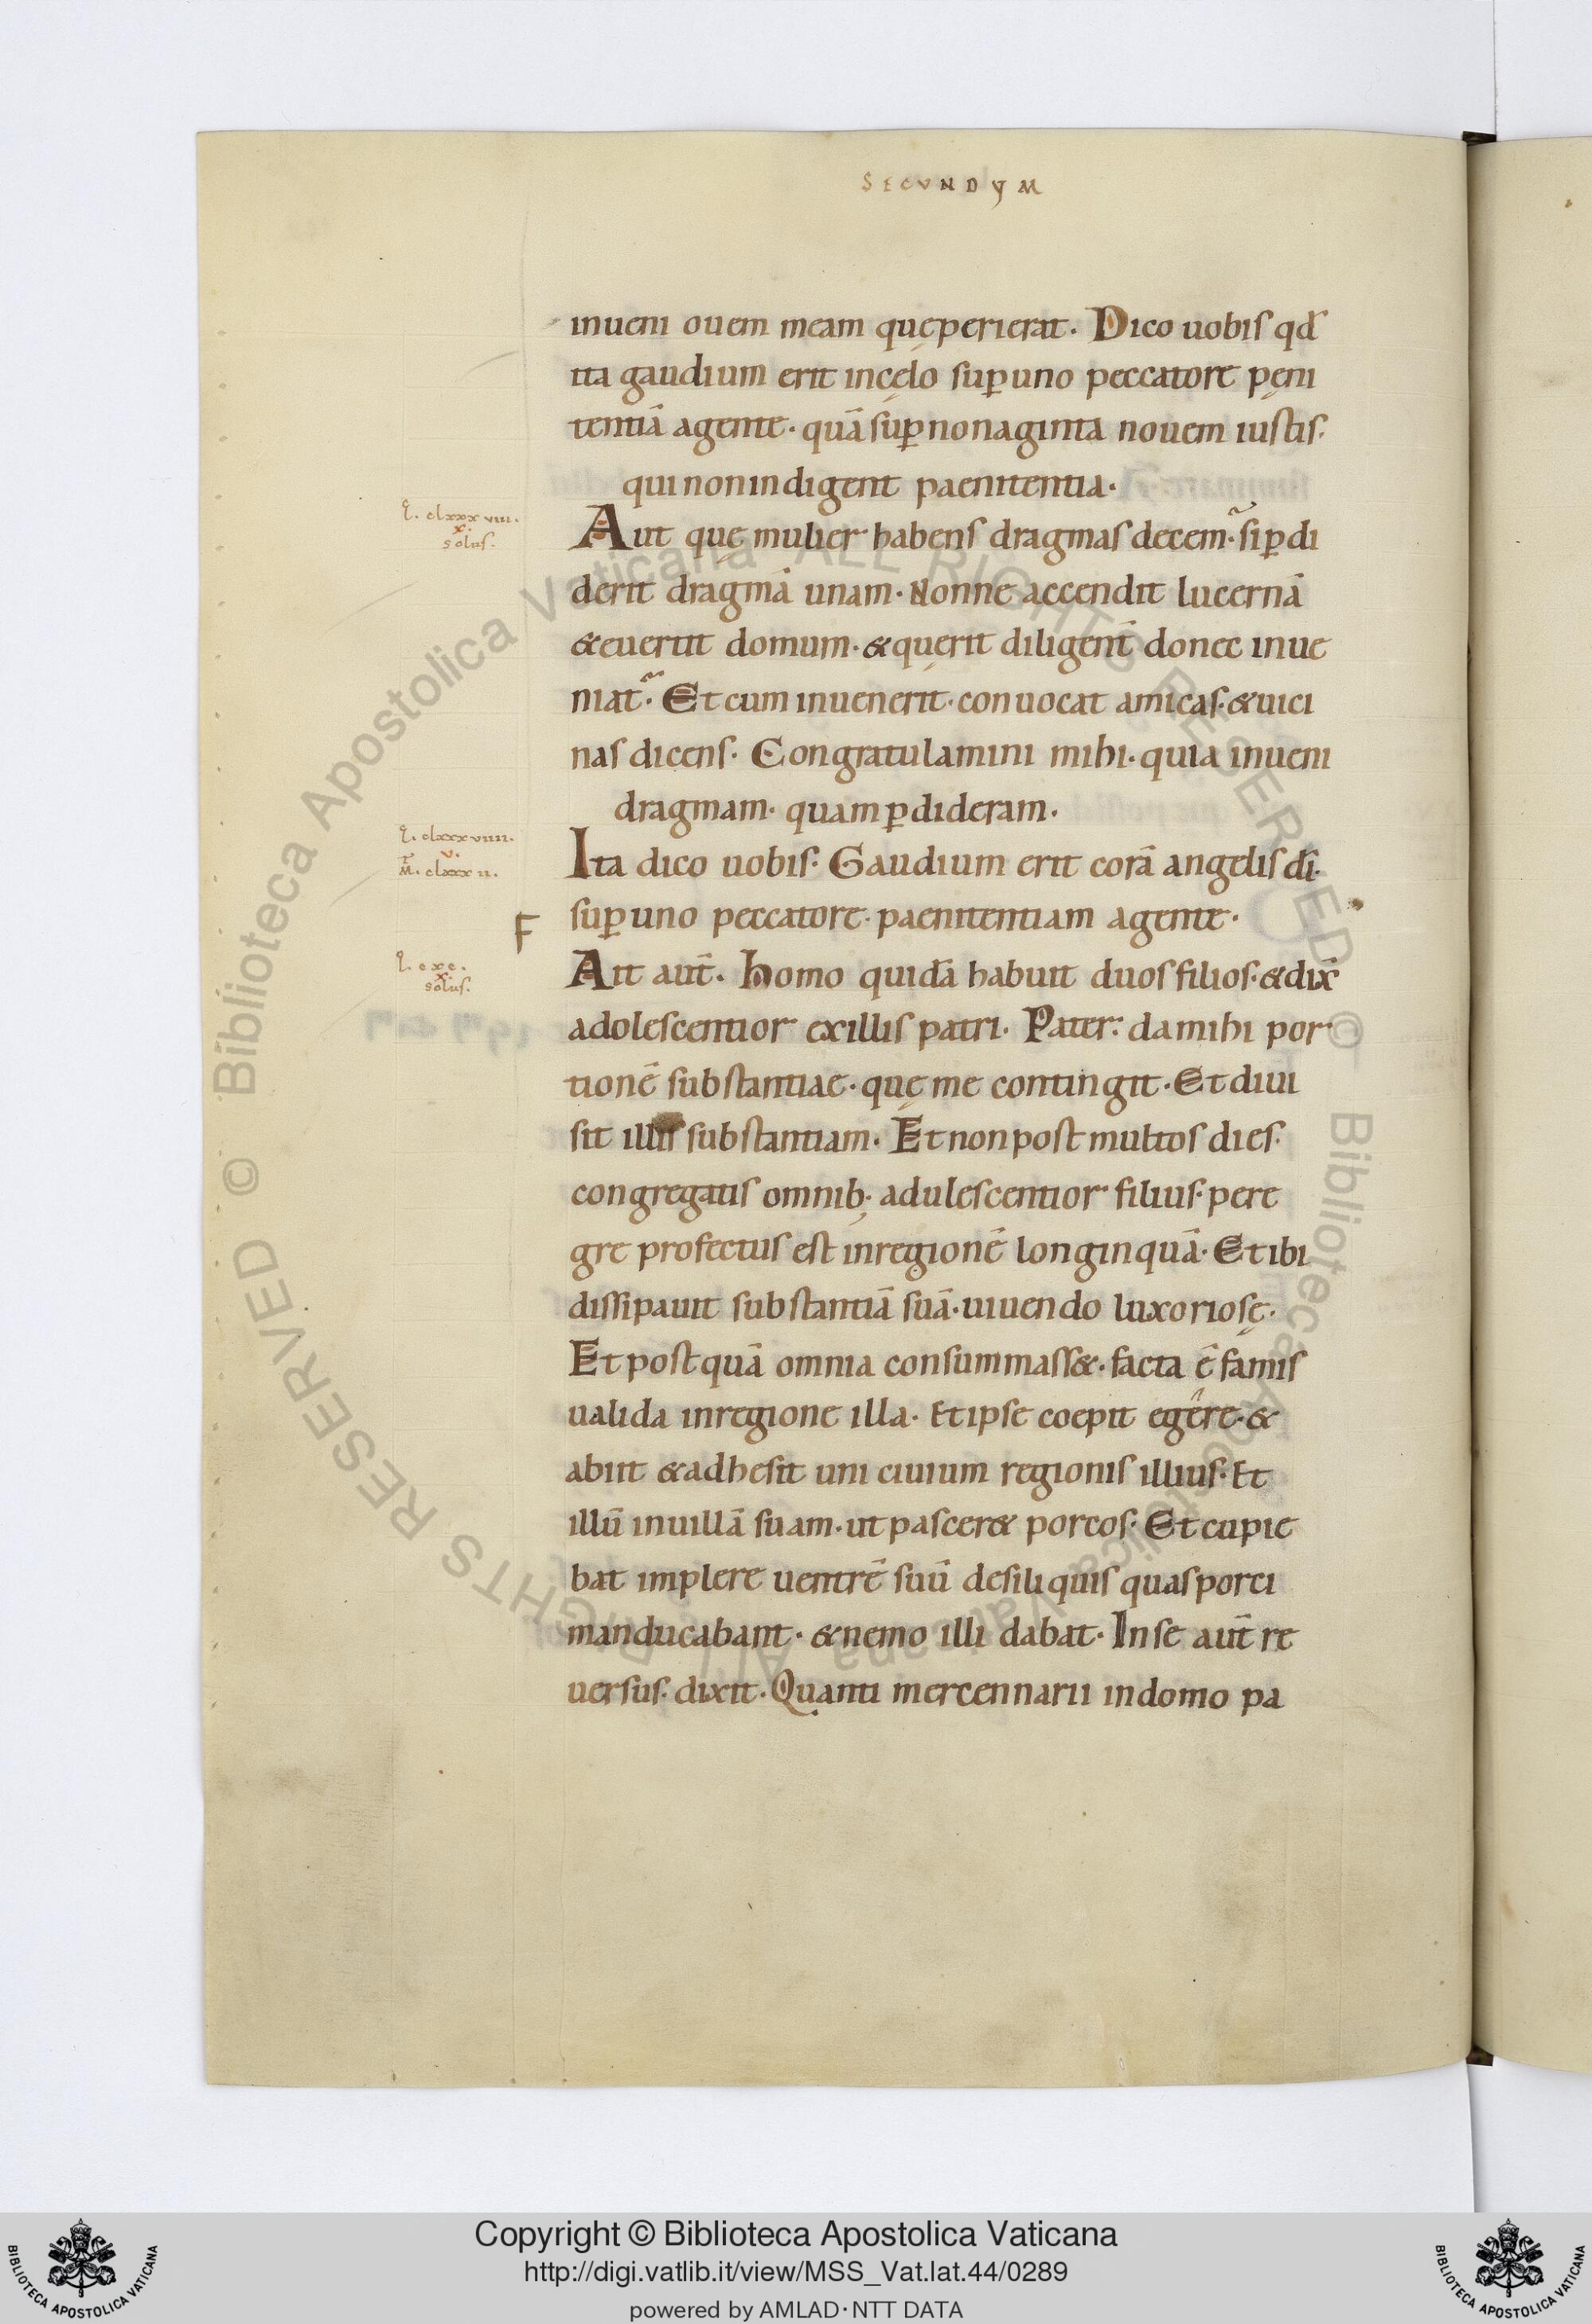 SECVNDVM
inueni ouem meam quęperierat. Dico uobis qđ
ita gaudium erit incęlo suꝑuno peccatore pęni
tentiā agente. quā suꝑnonaginta nouem iustis.
qui nonindigent paenitentia.
L. clxxxviii.
x.
solus.
Aut quę mulier habens dragmas decem. siꝑdi
derit dragmā unam. Nonne accendit lucernā
&euertit domum. &quęrit diligent̄ donec inue
niat. Et cum inuenerit. conuocat amicas. &uici
nas dicens. Congratulamini mihi. quia inueni
dragmam. quamꝑdideram.
L. clxxxviiii.
v.
M. clxxxii.
Ita dico uobis. Gaudium erit corā angelis dī.
suꝑuno peccatore. paenitentiam agente.
F
L. cxc.
x.
solus.
Ait aut̄. homo quidā habuit duos filios. &dix̄
adolescentior exillis patri. Pater. damihi por
tionē substantiae. quę me contingit. Et diui
sit illis substantiam. Et nonpost multos dies.
congregatis omnib; adulescentior filius. pere
gre profectus est inregionē longinquā. Et ibi
dissipauit substantiā suā. uiuendo luxoriosę.
Et postquā omnia consummass&. facta ē famis
ualida inregione illa. Etipse coepit egere. &
abiit &adhesit uni ciuium regionis illius. Et
illū inuillā suam. ut pascer& porcos. Et cupie
bat implere uentrē suū desiliquis quasporci
manducabant. &nemo illi dabat. Inse aut̄ re
uersus. dixit. Quanti mercennarii indomo pa
© Biblioteca Apostolica Vaticana ALL RIGHTS RESERVED © Biblioteca Apostolica Vaticana ALL RIGHTS RESERVED
Copyright © Biblioteca Apostolica Vaticana
http://digi.vatlib.it/view/MSS_Vat.lat.44/0289
powered by AMLAD·NTT DATA
BIBLIOTECA APOSTOLICA VATICANA
BIBLIOTECA APOSTOLICA VATICANA